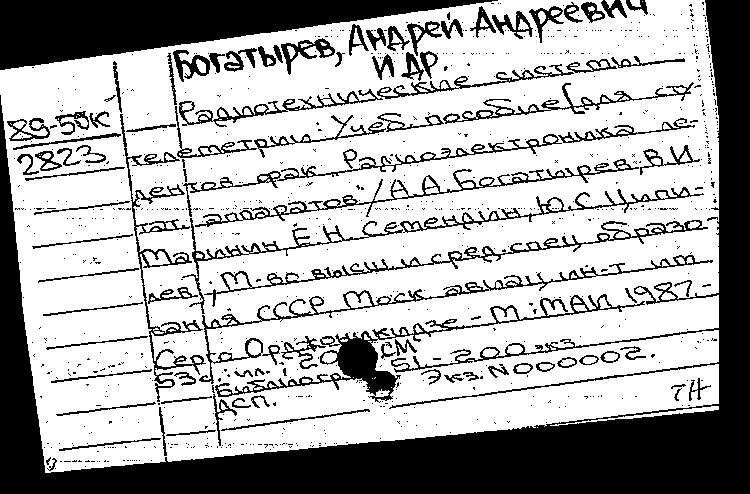 Богатырев, Андрей Андреевич
и др.
89-50к
2823
Радиотехнические системы
телеметрии: Учеб. пособие [для сту-
дентов фак. "Радиоэлектроника ле-
тат. аппаратов" / А.А. Богатырев, В.И.
Маринин, Е.Н. Сетендин, Ю.С. Ципи-
лев]; М-во высш. и сред. спец. образо-
вания СССР, Моск. авиац. ин-т им.
Серго Орджоникидзе. - М.: МАИ, 1987. -
53 с.: ил.; 20 см
Библиогр. 51. - 200 экз.
ДСП. Экз. N000002.